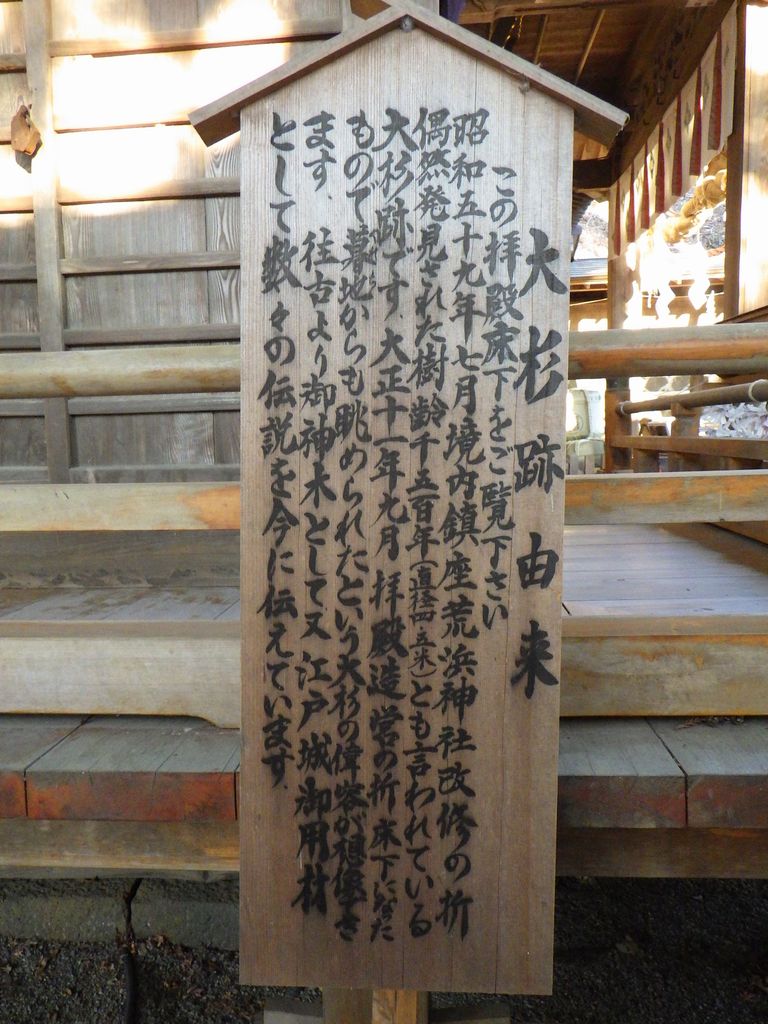 大杉跡由来
この拝殿床下をご覧下さい
昭和五十九年七月境内鎮座荒浜神社改修の折
偶然発見された樹齢千五百年(直径四・五米)とも言われている
大杉の跡です。大正十一年九月拝殿造営の折床下になった
もので墓地からも眺められたという大杉の偉容が想像でき
ます。往古より御神木として又江戸城御用材
として数々の伝説を今に伝えています。